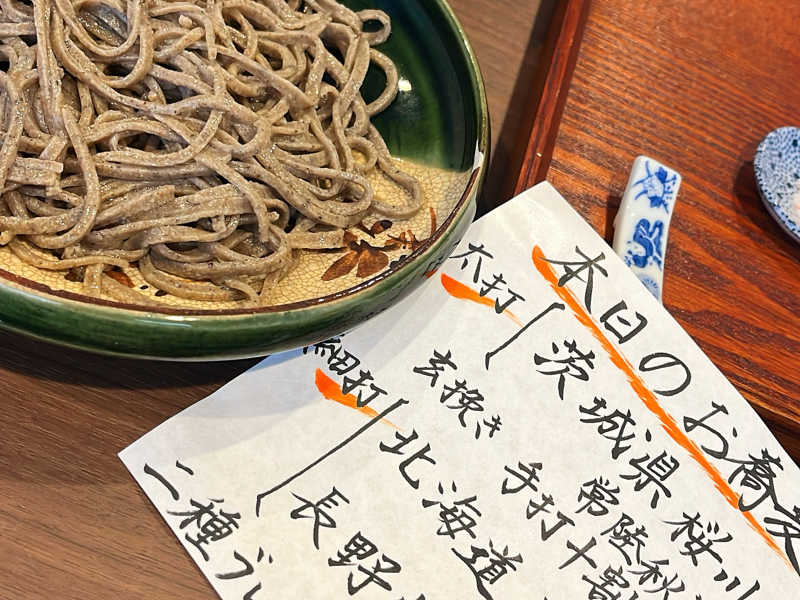 本日のお蕎麦
太打
茨城県桜川
常陸秋
玄挽き
手打十割
細打
北海道
長野
二種ブレ